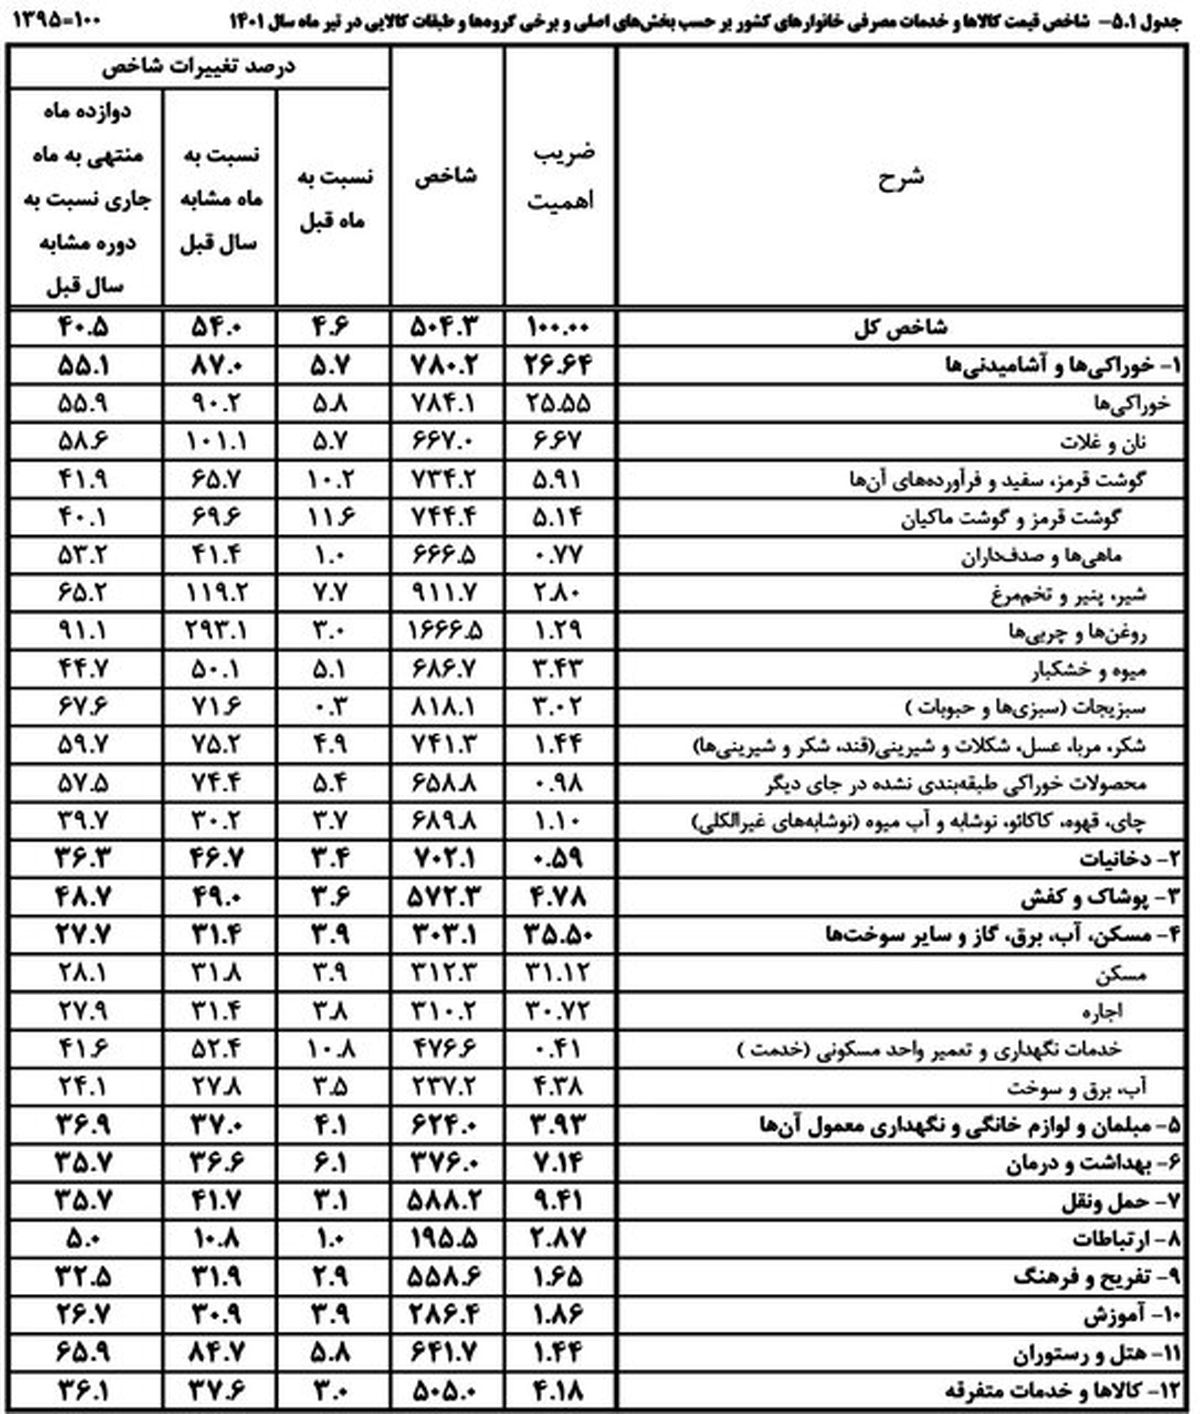 جدول ۵.۱- شاخص قیمت کالاها و خدمات مصرفی خانوارهای کشور بر حسب بخش‌های اصلی و برخی گروه‌ها و طبقات کالایی در تیر ماه سال ۱۴۰۱ ۱۳۹۵=۱۰۰
شرح ضریب اهمیت شاخص درصد تغییرات شاخص
نسبت به ماه قبل نسبت به ماه مشابه سال قبل دوازده ماه منتهی به ماه جاری نسبت به دوره مشابه سال قبل
شاخص کل ۱۰۰.۰۰ ۵۰۴.۳ ۴.۶ ۵۴.۰ ۴۰.۵
۱- خوراکی‌ها و آشامیدنی‌ها ۲۶.۶۴ ۷۸۰.۲ ۵.۷ ۸۷.۰ ۵۵.۱
خوراکی‌ها ۲۵.۵۵ ۷۸۴.۱ ۵.۸ ۹۰.۲ ۵۵.۹
نان و غلات ۶.۶۷ ۶۶۷.۰ ۵.۷ ۱۰۱.۱ ۵۸.۶
گوشت قرمز، سفید و فرآورده‌های آن‌ها ۵.۹۱ ۷۳۴.۲ ۱۰.۲ ۶۵.۷ ۴۱.۹
گوشت قرمز و گوشت ماکیان ۵.۱۴ ۷۴۴.۴ ۱۱.۶ ۶۹.۶ ۴۰.۱
ماهی‌ها و صدف‌داران ۰.۷۷ ۶۶۶.۵ ۱.۰ ۴۱.۴ ۵۳.۲
شیر، پنیر و تخم‌مرغ ۲.۸۰ ۹۱۱.۷ ۷.۷ ۱۱۹.۲ ۶۵.۲
روغن‌ها و چربی‌ها ۱.۲۹ ۱۶۶۶.۵ ۳.۰ ۲۹۳.۱ ۹۱.۱
میوه و خشکبار ۳.۴۳ ۶۸۶.۷ ۵.۱ ۵۰.۱ ۴۴.۷
سبزیجات (سبزی‌ها و حبوبات ) ۳.۰۲ ۸۱۸.۱ ۰.۳ ۷۱.۶ ۶۷.۶
شکر، مربا، عسل، شکلات و شیرینی(قند، شکر و شیرینی‌ها) ۱.۴۴ ۷۴۱.۳ ۴.۹ ۷۵.۲ ۵۹.۷
محصولات خوراکی طبقه‌بندی نشده در جای دیگر ۰.۹۸ ۶۵۸.۸ ۵.۴ ۷۴.۴ ۵۷.۵
چای، قهوه، کاکائو، نوشابه و آب میوه (نوشابه‌های غیرالکلی) ۱.۱۰ ۶۸۹.۸ ۳.۷ ۳۰.۲ ۳۹.۷
۲- دخانیات ۰.۵۹ ۷۰۲.۱ ۳.۴ ۴۶.۷ ۳۶.۳
۳- پوشاک و کفش ۴.۷۸ ۵۷۲.۳ ۳.۶ ۴۹.۰ ۴۸.۷
۴- مسکن، آب، برق، گاز و سایر سوخت‌ها ۳۵.۵۰ ۳۰۳.۱ ۳.۹ ۳۱.۴ ۲۷.۷
مسکن ۳۱.۱۲ ۳۱۲.۳ ۳.۹ ۳۱.۸ ۲۸.۱
اجاره ۳۰.۷۲ ۳۱۰.۲ ۳.۸ ۳۱.۴ ۲۷.۹
خدمات نگهداری و تعمیر واحد مسکونی (خدمت ) ۰.۴۱ ۴۷۶.۶ ۱۰.۸ ۵۲.۴ ۴۱.۶
آب، برق و سوخت ۴.۳۸ ۲۳۷.۲ ۳.۵ ۲۷.۸ ۲۴.۱
۵- مبلمان و لوازم خانگی و نگهداری معمول آن‌ها ۳.۹۳ ۶۲۴.۰ ۴.۱ ۳۷.۰ ۳۶.۹
۶- بهداشت و درمان ۷.۱۴ ۳۷۶.۰ ۶.۱ ۳۶.۶ ۳۵.۷
۷- حمل ونقل ۹.۴۱ ۵۸۸.۲ ۳.۱ ۴۱.۷ ۳۵.۷
۸- ارتباطات ۲.۸۷ ۱۹۵.۵ ۱.۰ ۱۰.۸ ۵.۰
۹- تفریح و فرهنگ ۱.۶۵ ۵۵۸.۶ ۲.۹ ۳۱.۹ ۳۲.۵
۱۰- آموزش ۱.۸۶ ۲۸۶.۴ ۳.۹ ۳۰.۹ ۲۶.۷
۱۱- هتل و رستوران ۱.۴۴ ۶۴۱.۷ ۵.۸ ۸۴.۷ ۶۵.۹
۱۲- کالاها و خدمات متفرقه ۴.۱۸ ۵۰۵.۰ ۳.۰ ۳۷.۶ ۳۶.۱